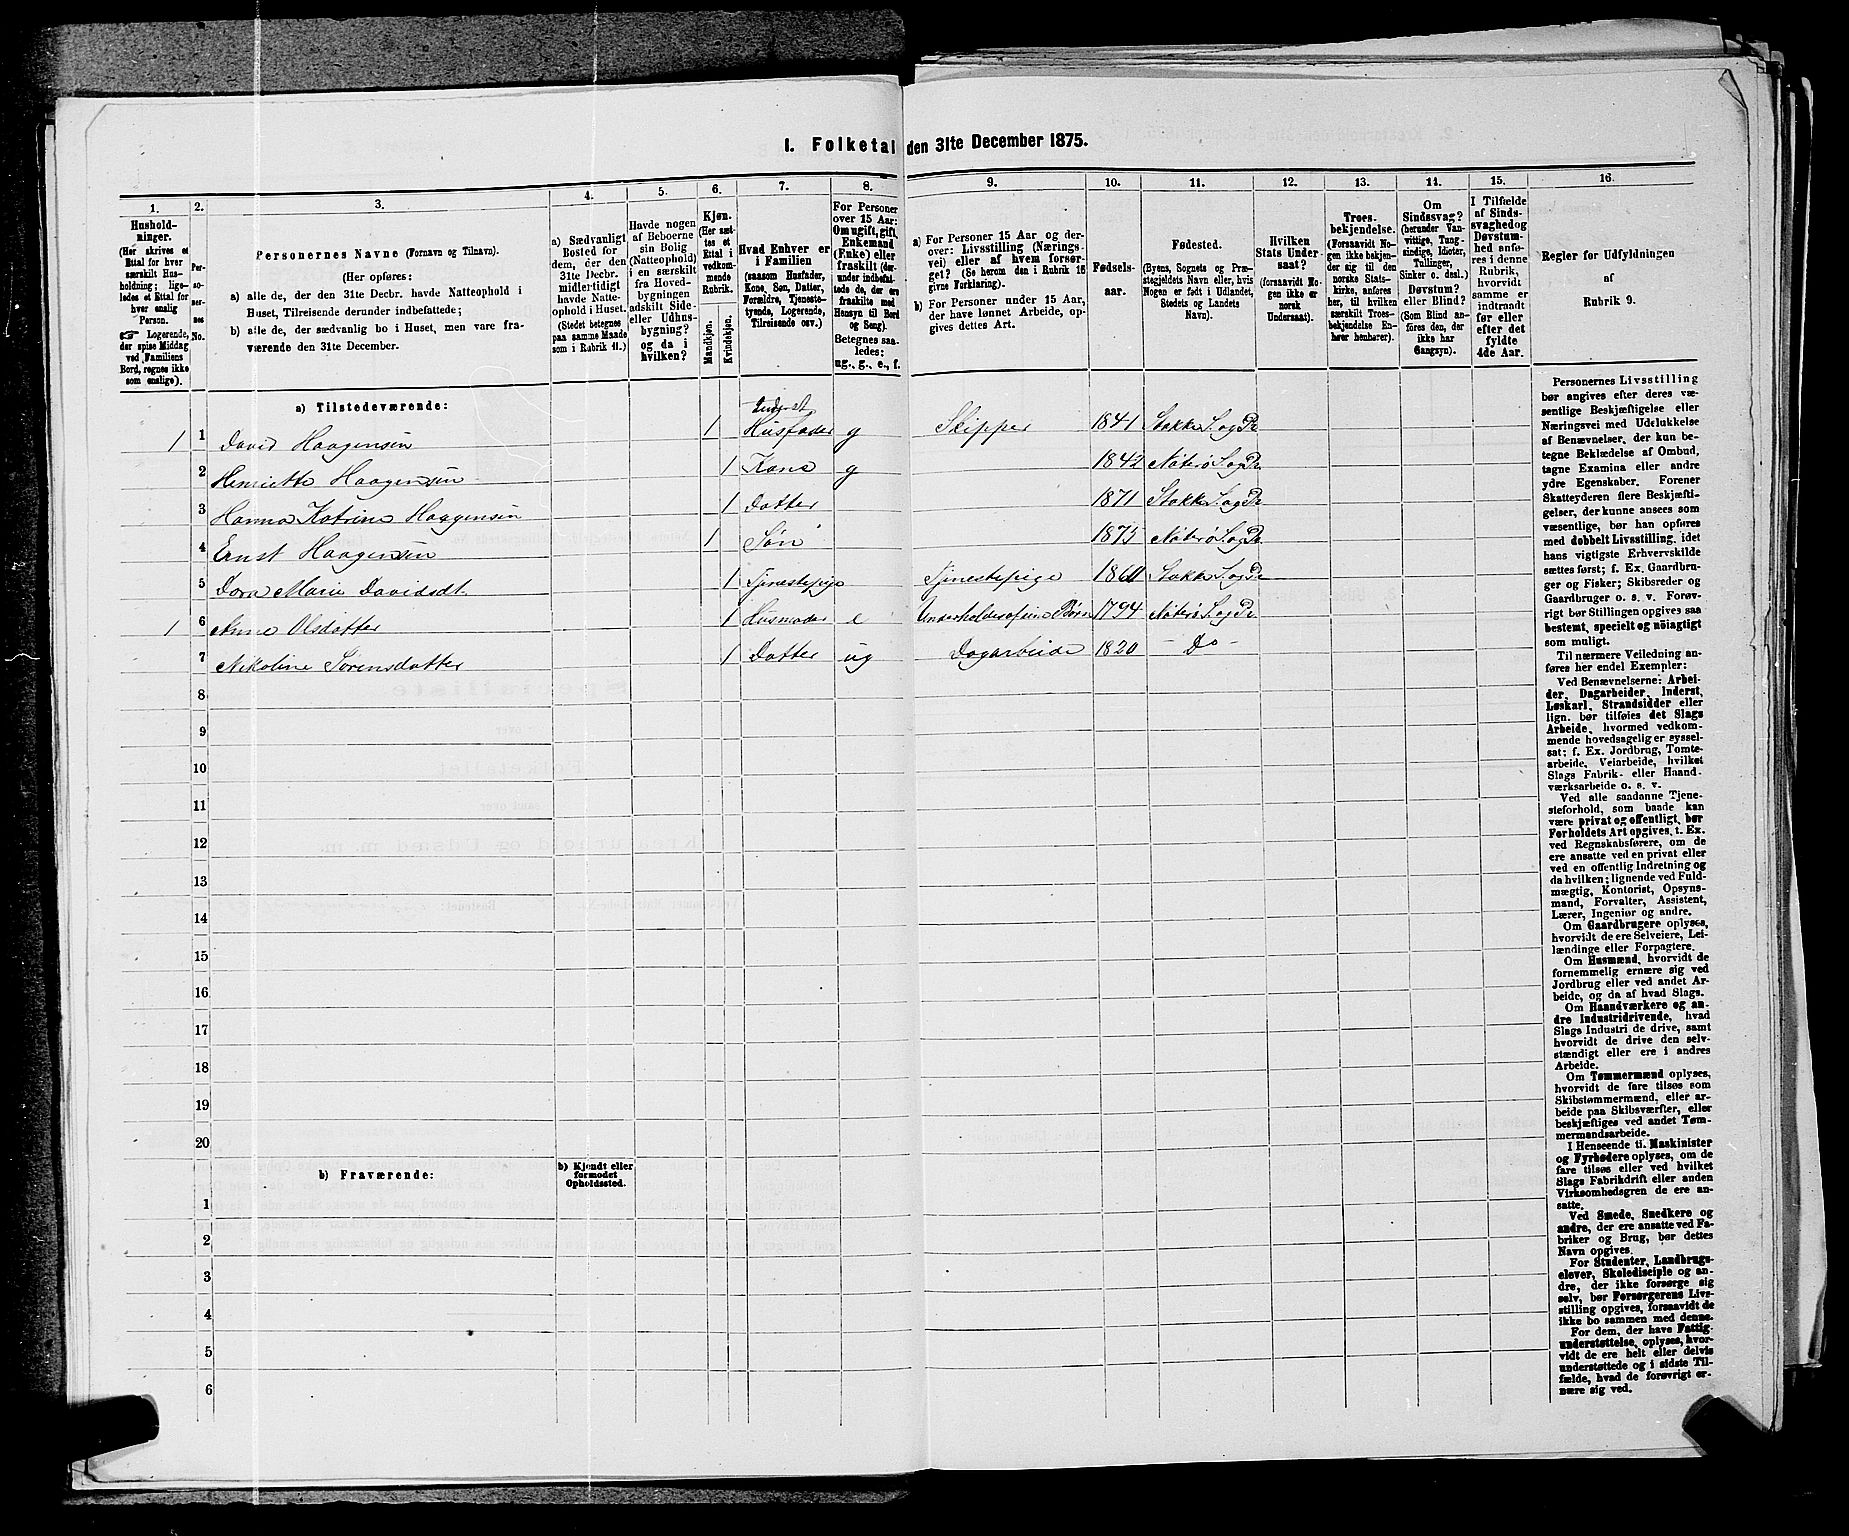 I. Folketal den 31te December 1875.
1.
2.
3.
4.
5.
6.
7.
8.
9.
10.
11.
12.
13.
14.
15.
16.
Hushold-
ninger.
(Her skrives et
Ettal for hver
særskilt Hus-
holdning; lige-
ledes et Ettal for
hver enslig
Person.
☞ Logerende,
der spise Middag
ved Familiens
Bord, regnes ikke
som enslige).
Per-
so-
ner-
nes
No.
Personernes Navne (Fornavn og Tilnavn).
(Her opføres:
a) alle de, der den 31te Decbr. havde Natteophold i
Huset, Tilreisende derunder indbefattede;
b) alle de, der sædvanlig bo i Huset, men vare fra-
værende den 31te December.
a) Sædvanligt
Bosted for
dem, der den
31te Decbr.
midlertidigt
havde Natte-
ophold i Huset.
(Stedet betegnes
paa samme Maade
som i Rubrik 11.)
Havde nogen
af Beboerne
sin Bolig
(Natteophold)
i en særskilt
fra Hoved-
bygningen
adskilt Side-
eller Udhus-
bygning?
og da i
hvilken?
Kjøn.
(Her sæt-
tes et
Ettal i
vedkom-
mende
Rubrik.
Mandkjøn.
Kvindekjøn.
Hvad Enhver er
i Familien
(saasom Husfader,
Kone, Søn, Datter,
Forældre, Tjeneste-
tyende, Logerende,
Tilreisende osv.)
For Personer
over 15 Aar:
Om ugift, gift,
Enkemand
(Enke) eller
fraskilt (der-
under indbefat-
tede de, der ere
fraskilte med
Hensyn til Bord
og Seng).
Betegnes saa-
ledes:
ug., g., e., f.
a) For Personer 15 Aar og der-
over: Livsstilling (Nærings-
vei) eller af hvem forsør-
get? (Se herom den i Rubrik 16
givne Forklaring).
b) For Personer under 15 Aar,
der have lønnet Arbeide, op-
gives dettes Art.
Fødsels-
aar.
Fødested.
(Byens, Sognets og Præ-
stegjeldets Navn eller, hvis
Nogen er født i Udlandet,
Stedets og Landets
Navn).
Hvilken
Stats Under-
saat?
(forsaavidt No-
gen ikke er
norsk
Undersaat).
Troes-
bekjendelse.
(Forsaavidt No-
gen ikke bekjen-
der sig til den
norske Stats-
kirke, anføres
her, til hvilken
særskilt Troes-
bekjendelse En-
hver henhører).
Om
Sindssvag?
(herunder Van-
vittige, Tung-
sindige, Idioter,
Tullinger,
Sinker o. desl.)
Døvstum?
eller Blind?
(Som Blind an-
føres den, der
ikke har
Gangsyn).
I Tilfælde
af Sinds-
svaghed og
Døvstum-
hed anfø-
res i denne
Rubrik,
hvorvidt
samme er
indtraadt
før eller
efter det
fyldte
4de Aar.
Regler for Udfyldningen
af
Rubrik 9.
a) Tilstedeværende:
1 1 David Haagensen 1 Inderst Husfader g Skipper 1841 Stokke S. og Pr
2 Henriette Haagensen 1 Kone g 1842 Nøterø S. og Pr
3 Hanna Katrine Haagensen 1 Datter 1871 Stokke S. og Pr
4 Ernst Haagensen 1 Søn 1875 Nøterø S. og Pr
5 Dora Marie Davidsdt. 1 Tjenestepige Tjenestepige Stokke S. og Pr
1 6 Anne Olsdatter 1 Husmoder e Underholdes af sine Børn 1794 Nøterø S. og Pr
7 Nikoline Sørensdatter 1 Datter ug Dagarbeide 1820 - Do -
8
9
10
11
12
13
14
15
16
17
18
19
20
b) Fraværende:
b) Kjendt eller
formodet
Opholdssted.
1
2
3
4
5
6
Personernes Livsstilling
bør angives efter deres væ-
sentlige Beskjæftigelse eller
Næringsvei med Udelukkelse
af Benævnelser, der kun be-
tegne Beklædelse af Ombud,
tagne Examina eller andre
ydre Egenskaber. Forener
Skatteyderen flere Beskjæfti-
gelser, der kunne ansees som
væsentlige, bør han opføres
med dobbelt Livsstilling, idet
hans vigtigste Erhvervskilde
sættes først; f. Ex. Gaardbru-
ger og Fisker; Skibsreder og
Gaardbruger o. s. v. Forøv-
rigt bør Stillingen opgives saa
bestemt, specielt og nöiagtigt
som muligt.
Til nærmere Veiledning an-
føres her endel Exempler:
Ved Benævnelserne: Arbei-
der, Dagarbeider, Inderst,
Løskarl, Strandsidder eller
lign. bør tilføies det Slags
Arbeide, hvormed vedkom-
mende hovedsagelig er syssel-
sat; f. Ex. Jordbrug, Tomte-
arbeide, Veiarbeide, hvilket
Slags Fabrik- eller Haand-
værksarbeide o. s. v.
Ved alle saadanne Tjene-
steforhold, som baade kan
være privat og offentligt, bør
Forholdets Art opgives, t. Ex.
ved Regnskabsførere, om de
ere ansatte ved en privat eller
ved en offentlig Indretning og
da hvilken; lignende ved Fuld-
mægtig, Kontorist, Opsyns-
mand, Forvalter, Assistent,
Lærer, Ingeniør og andre.
Om Gaardbrugere oplyses,
hvorvidt de ere Selveiere, Lei-
lændinge eller Forpagtere.
Om Husmænd, hvorvidt de
fornemmelig ernære sig ved
Jordbrug eller ved andet Ar-
beide, og da af hvad Slags.
Om Haandværkere og an-
dre Industridrivende, hvad
Slags Industri de drive, samt
hvorvidt de drive den selv-
stændigt eller ere i andres
Arbeide.
Om Tømmermænd oplyses,
hvorvidt de fare tilsøs som
Skibstømmermænd, eller ar-
beide paa Skibsværfter, eller
beskjæftiges ved andet Tøm-
mermandsarbeide.
I Henseende til Maskinister
og Fyrbødere oplyses, om de
fare tilsøs eller ved hvilket
Slags Fabrikdrift eller anden
Virksomhedsgren de ere an-
satte.
Ved Smede, Snedkere og
andre, der ere ansatte ved Fa-
briker og Brug, bør dettes
Navn opgives.
For Studenter, Landbrugs-
elever, Skoledisciple og an-
dre, der ikke forsørge sig
selv, bør Forsørgerens Livs-
stilling opgives, forsaavidt de
ikke bo sammen med denne.
For dem, der have Fattig-
understøttelse, oplyses, hvor-
vidt de ere helt eller delvis
understøttede og i sidste Til-
fælde, hvad de forøvrigt er-
nære sig ved.